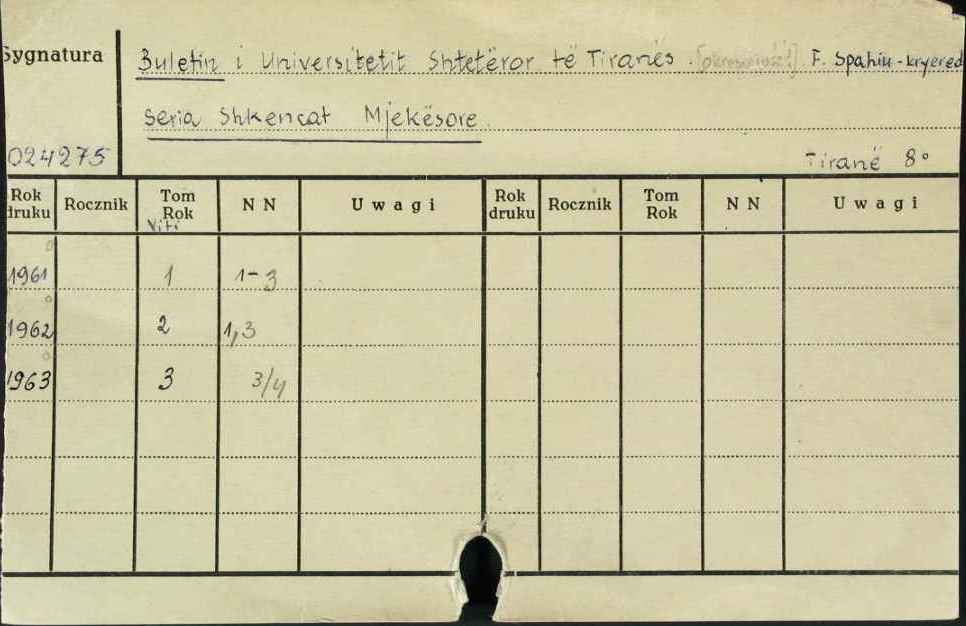 Sygnatura
Buletin i Universitetit Shtetëror të Tiranës. F. Spahiu - kryered
Seria Shkencat Mjekësore.
024275
Tiranë 8°
Rok druku Rocznik Tom Rok N N Uwagi Rok druku Rocznik Tom Rok N N Uwagi
Viti
1961 1 1-3
1962 2 1,3
1963 3 3/4